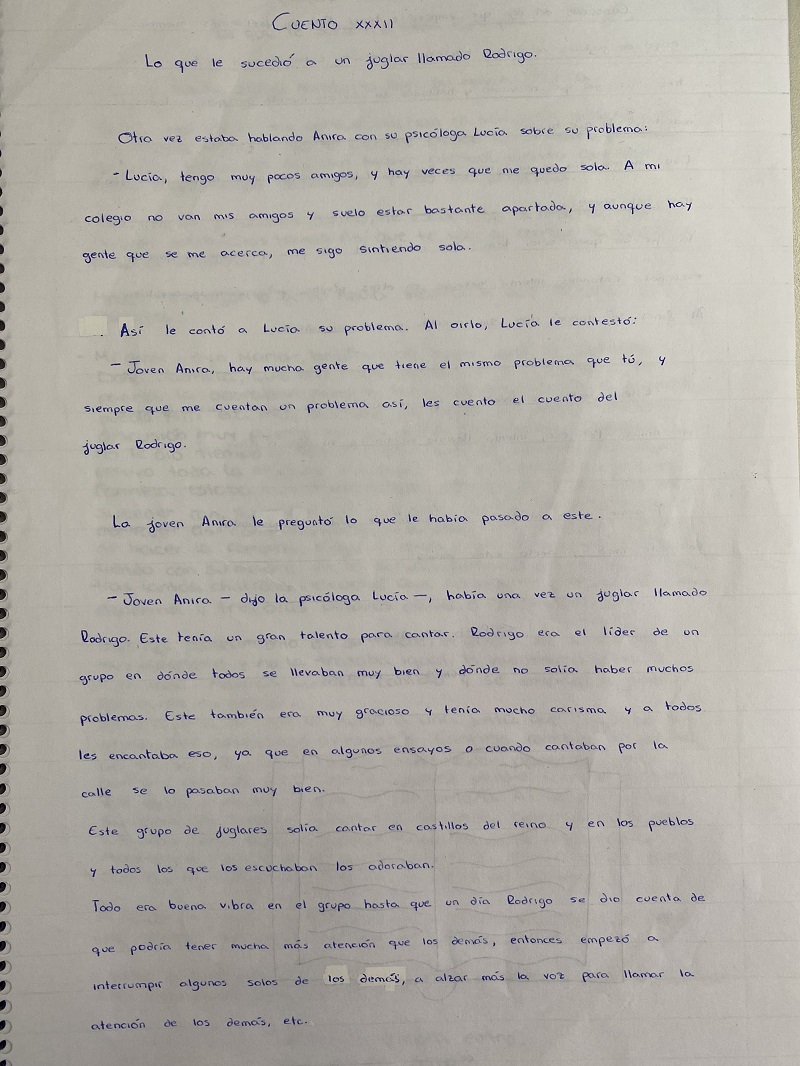 CUENTO XXXII
Lo que le sucedió a un juglar llamado Rodrigo.
Otra vez estaba hablando Anira con su psicóloga Lucía sobre su problema:
- Lucía, tengo muy pocos amigos, y hay veces que me quedo sola. A mi
colegio no van mis amigos y suelo estar bastante apartada, y aunque hay
gente que se me acerca, me sigo sintiendo sola.
Así le contó a Lucía su problema. Al oirlo, Lucía le contestó:
- Joven Anira, hay mucha gente que tiene el mismo problema que tú, y
siempre que me cuentan un problema así, les cuento el cuento del
juglar Rodrigo.
La joven Anira le preguntó lo que le había pasado a este.
- Joven Anira - dijo la psicóloga Lucía -, había una vez un juglar llamado
Rodrigo. Este tenía un gran talento para cantar. Rodrigo era el líder de un
grupo en dónde todos se llevaban muy bien y dónde no solía haber muchos
problemas. Este también era muy gracioso y tenía mucho carisma y a todos
les encantaba eso, ya que en algunos ensayos o cuando cantaban por la
calle se lo pasaban muy bien.
Este grupo de juglares solía cantar en castillos del reino y en los pueblos
y todos los que los escuchaban los adoraban.
Todo era buena vibra en el grupo hasta que un día Rodrigo se dio cuenta de
que podría tener mucha más atención que los demás, entonces empezó a
interrumpir algunos solos de los demás, a alzar más la voz para llamar la
atención de los demás, etc.